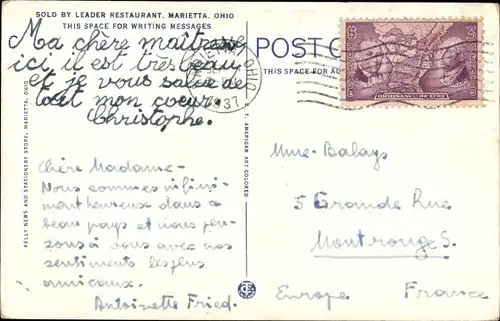 SOLD BY LEADER RESTAURANT, MARIETTA, OHIO
THIS SPACE FOR WRITING MESSAGES
Ma chère maîtresse
ici il est très beau
et je vous salue de
tout mon coeur.
Christophe.
Chère Madame-
Nous sommes infini-
ment heureux dans ce
beau pays et nous pen-
sons à vous avec nos
sentiments les plus
amicaux.
Antoinette Fried.
KELLY NEWS AND STATIONERY STORE, MARIETTA, OHIO
C. T. AMERICAN ART COLORED
POST
THIS SPACE FOR
OHIO
1937
3
Mme Balays
5 Grande Rue
Montrouge S.
Europe France